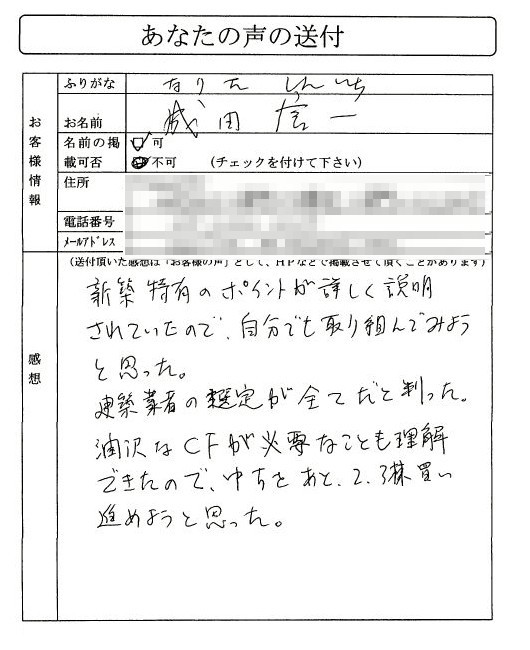 あなたの声の送付
お客様情報
ふりがな なりた しんいち
お名前 成田 信一
名前の掲載可否 可
不可 (チェックを付けて下さい)
住所
電話番号
メールアドレス
感想
(送付頂いた感想は「お客様の声」として、HPなどで掲載させて頂くことがあります)
新築特有のポイントが詳しく説明
されていたので、自分でも取り組んでみよう
と思った。
建築業者の選定が全てだと判った。
潤沢なCFが必要なことも理解
できたので、中古をあと、2、3棟買い
進めようと思った。